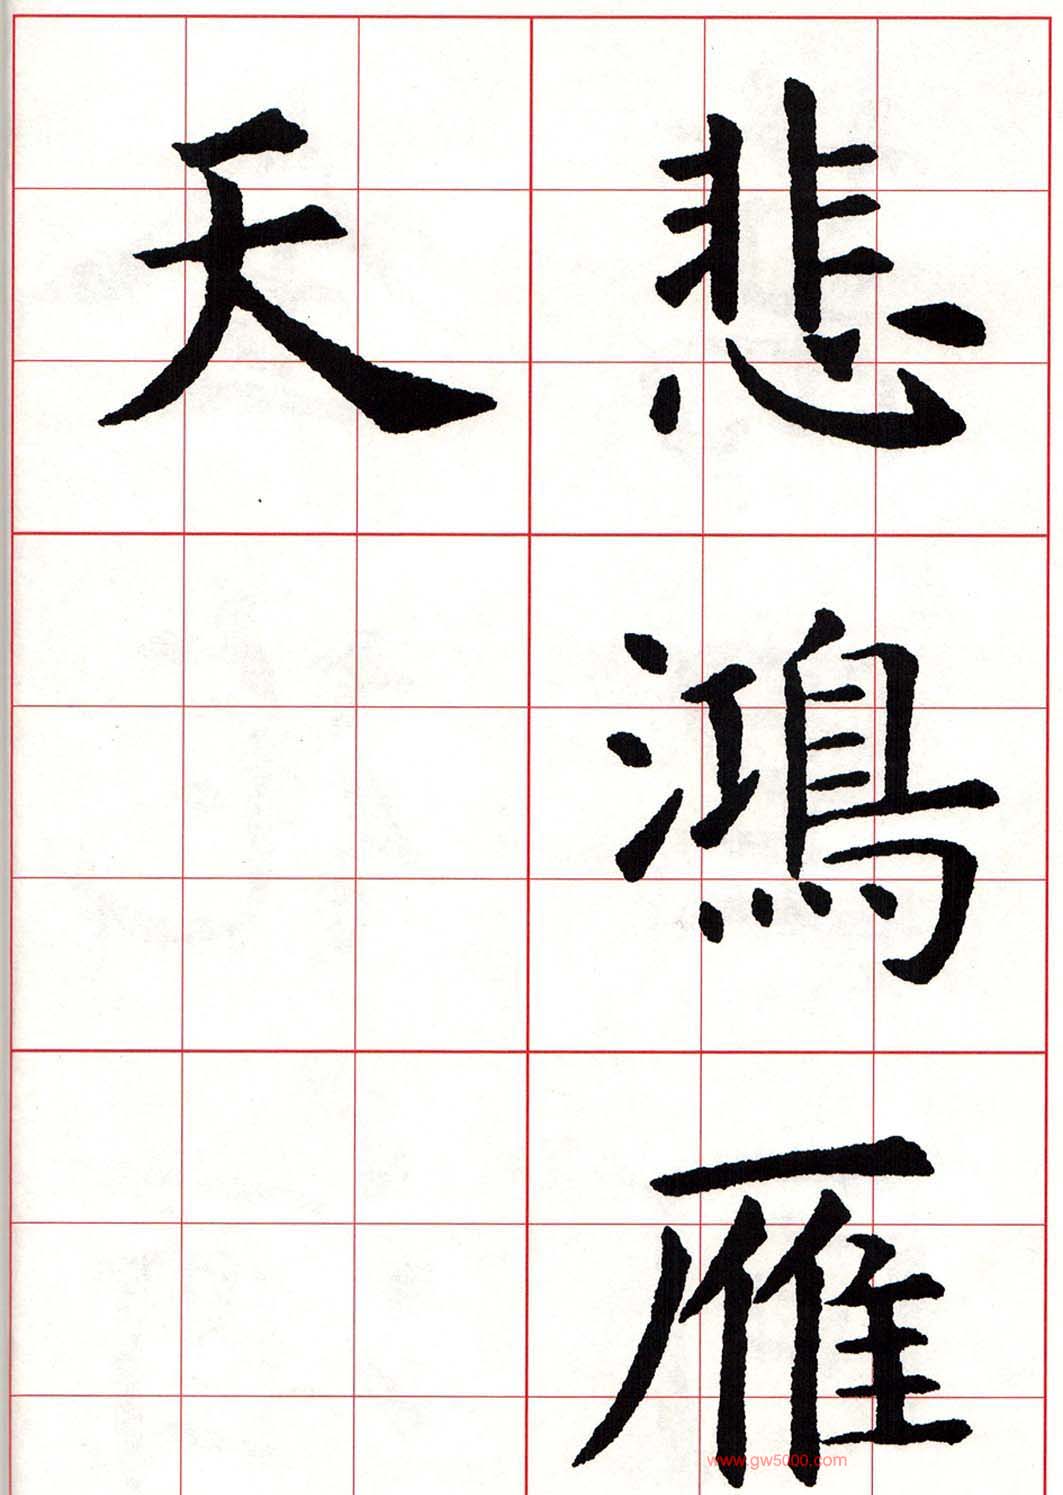 悲鴻雁
天
www.gw5000.com